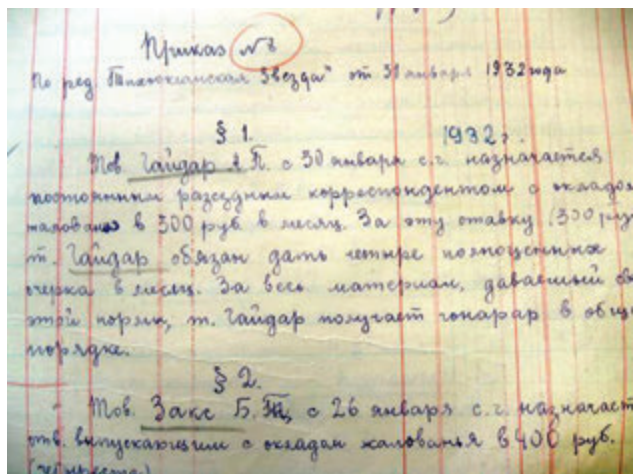 Приказ №8
По ред „Тихоокеанская Звезда" от 31 января 1932 года
§ 1. 1932г.
Тов. Гайдар А.П. с 30 января с.г. назначается
постоянным разъездным корреспондентом с окладом
жалованья в 300 руб в месяц. За эту ставку (300 руб
т. Гайдар обязан дать четыре полноценных
очерка в месяц. За весь материал, даваемый св
этой нормы, т. Гайдар получает гонарар в общ
порядке.
§ 2.
Тов. Закс Б. с 26 января с.г. назначает
отв. выпускающим с окладом жалованья в 400 руб.
(четыреста)